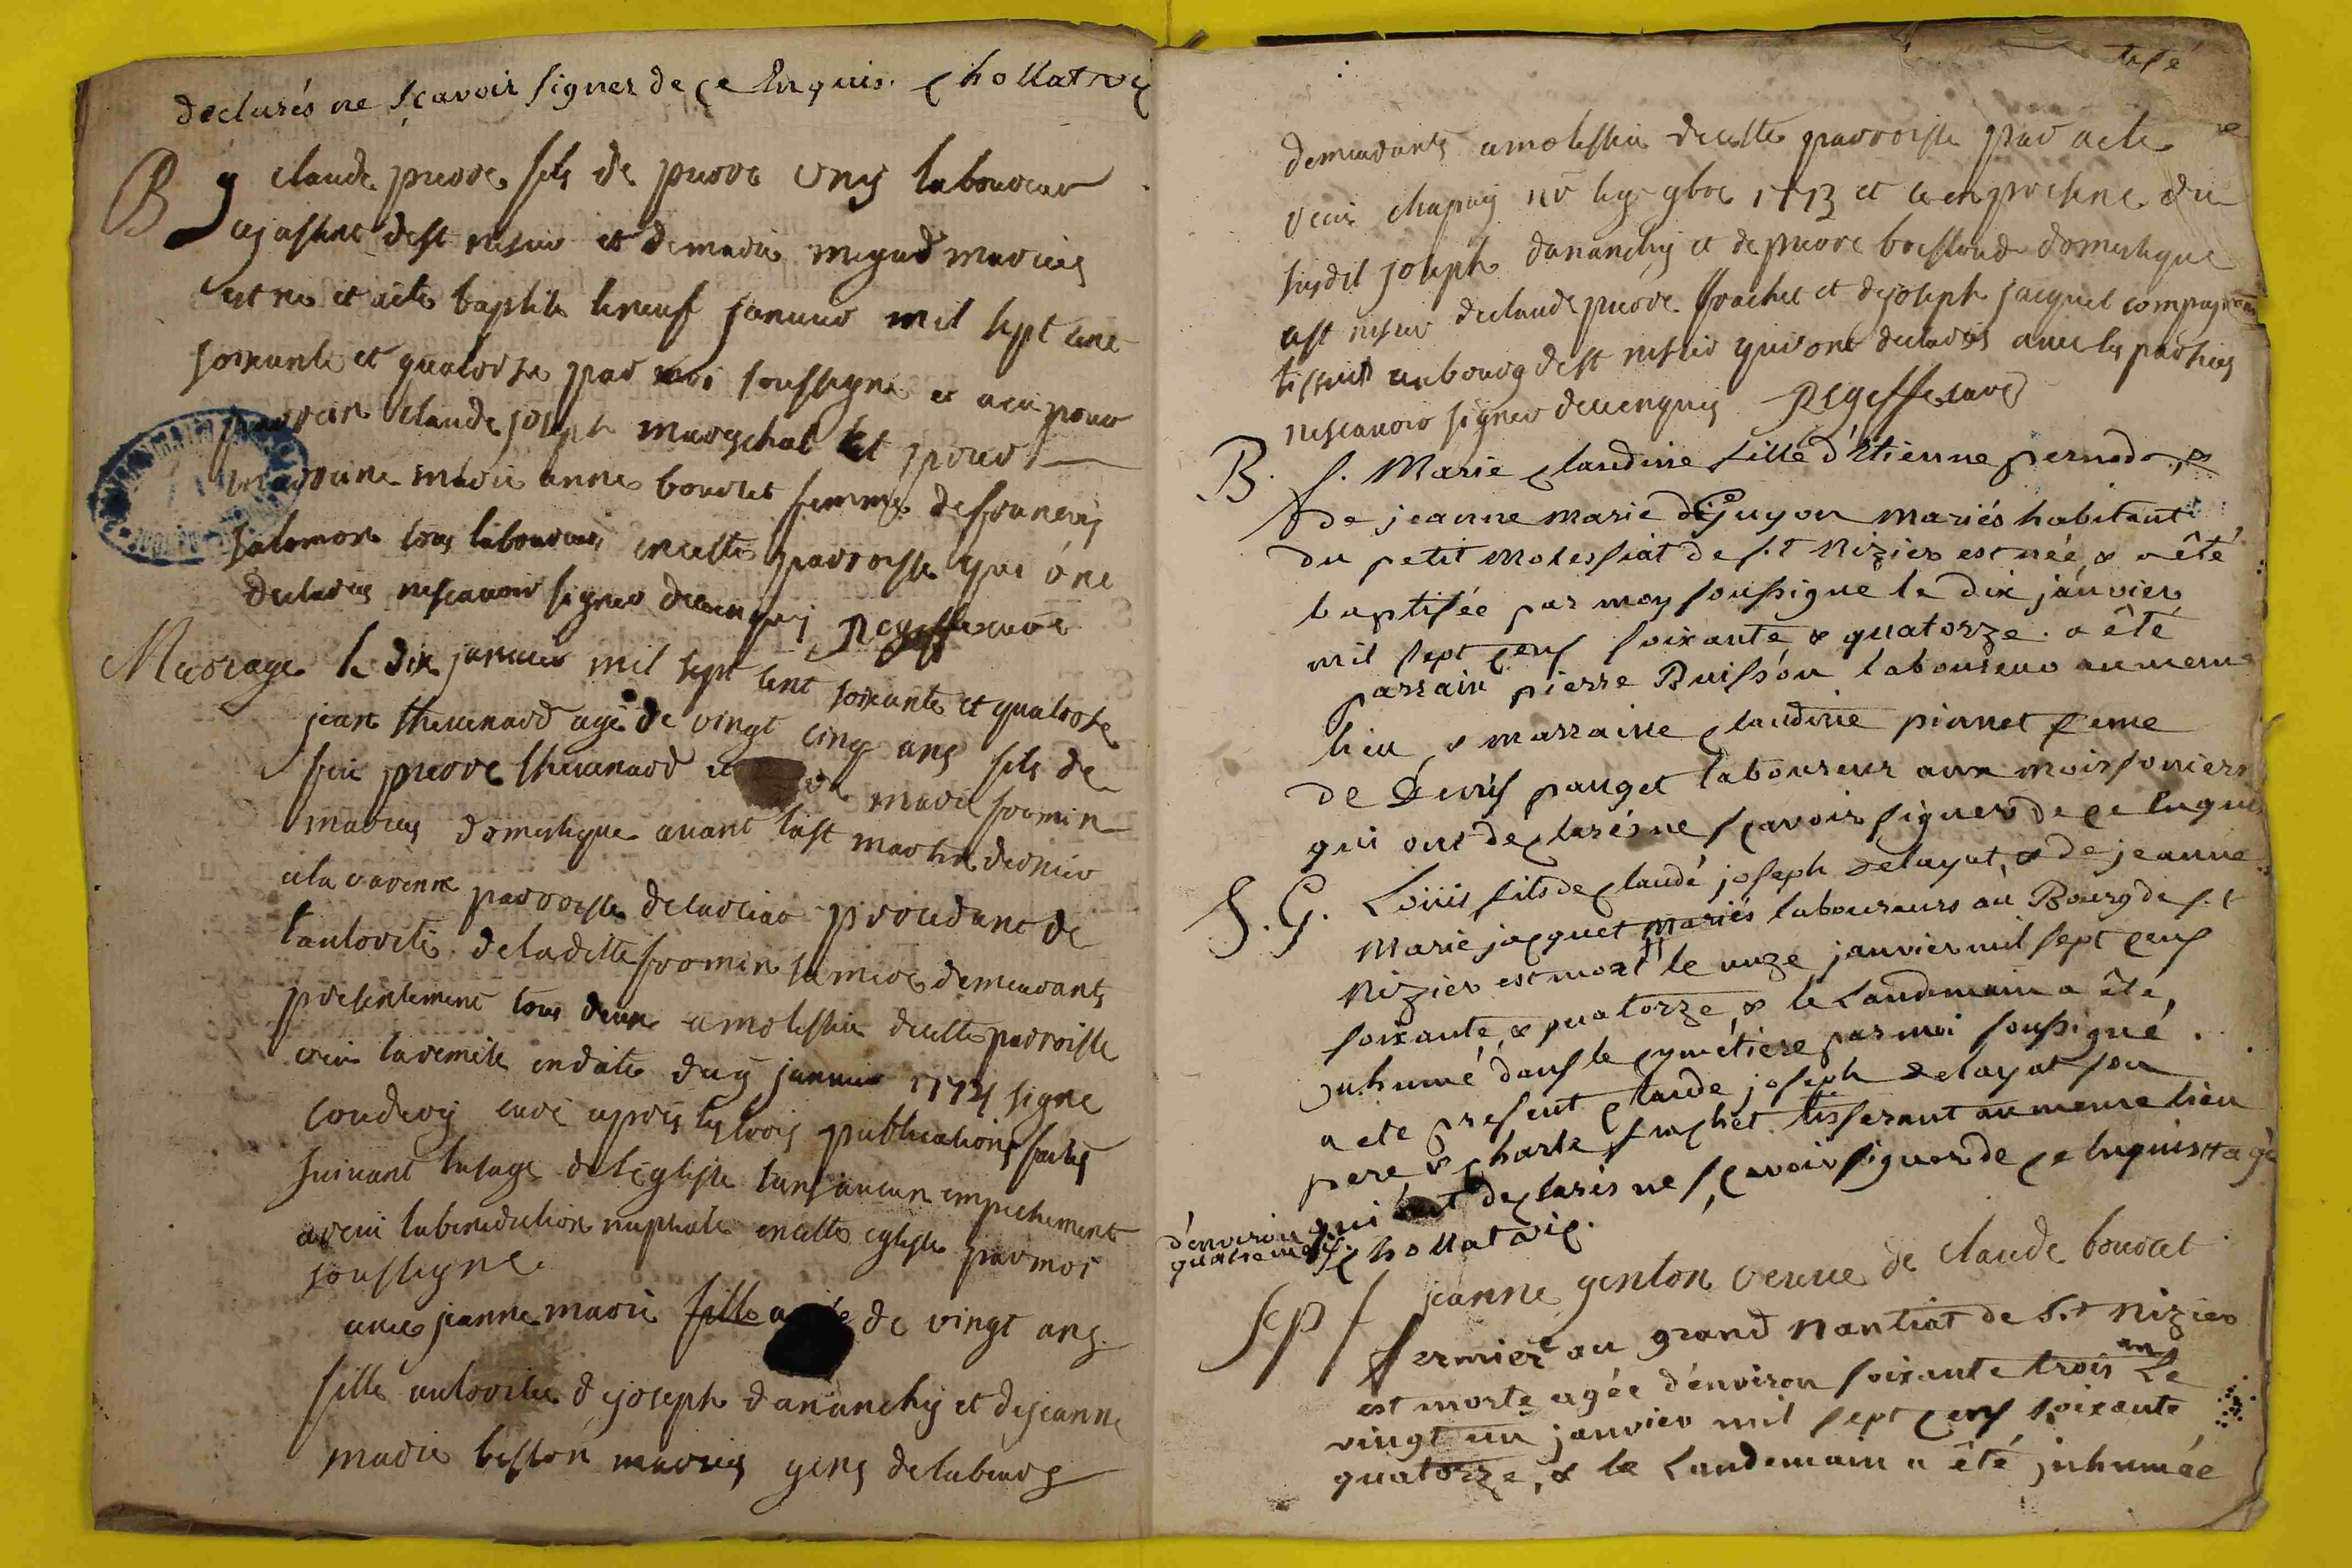 declarés ne sçavoir signer de ce enquis. Chollat vic
B g claude pierre fils de pierre
laboureur
a st nisier et de marie mariés
est né et a été baptisé le neuf janvier mil sept cent
soixante et quatorse par moi soussigné et a eu pour
parrain claude joseph mareschal et pour
marraine marie anne bourcet femme de françois
salomon tous laboureurs en cette parroisse qui ont
declarés ne scavoir signer de ce enquis curé
Mariage le dix janvier mil sept cent soixante et quatorse
jean thevenard agé de vingt cinq ans fils de
feu pierre thevenard et marie fromin
mariés domestique avant la st martin dernier
a la varenne parroisse de procedant de
l'autorité de laditte fromin sa mere demeurants
presentement tous deux a molissia de cette parroisse
veu la remise en date du janvier 1774 signé
curé apres les trois publications faites
suivant l'usage de l'eglise sans aucun empechement
a receu la benediction nuptiale en cette eglise par moi
soussigné
avec jeanne marie fille agée de vingt ans
fille autorisée de joseph dananchy et de jeanne
marie mariés gens de labeurs
demeurants a molissia de cette parroisse par acte
receu chapuy n.re 1773 et ce en presence du
susdit joseph dananchy et de pierre domestique
a st nisier de claude pierre frachet et de joseph jacquet compagnon
tissier au bourg de st nisier qui ont declarés avec les parties
ne scavoir signer de ce enquis curé
B. f. Marie Claudine fille d'Etienne &
de jeanne marie Guyon mariés habitant
du petit Molessiat de s.t Nizier est née, & a été
baptisée par moy soussigné le dix janvier
mil sept cens soixante & quatorze. a été
parrain pierre Buisson laboureur au meme
lieu, & marraine Claudine piannet feme
de Denis pauget laboureur aux moissoniers
qui ont declarés ne scavoir signer de ce enquis
S. G. Loüis fils de Claude joseph Delayat, & de jeanne
Marie jacquet Mariés laboureurs au Bourg de s.t
Nizier est mort le onze janvier mil sept cens
soixante, & quatorze, & le Landemain a été,
inhumé dans le cymetiere par moi soussigné.
a été present Claude joseph Delayat son
pere, & Charle frachet tisserant au meme lieu
qui ont declarés ne scavoir signer de ce enquis # agé
d'environ
quatre mois. Chollat vic.
Sep f jeanne genton veuve de claude bourcet
fermier au grand Nantiat de S.t Nizier
est morte agée d'environ soixante trois an Le
vingt un janvier mil sept cens soixante
quatorze, & le Landemain a été inhumée